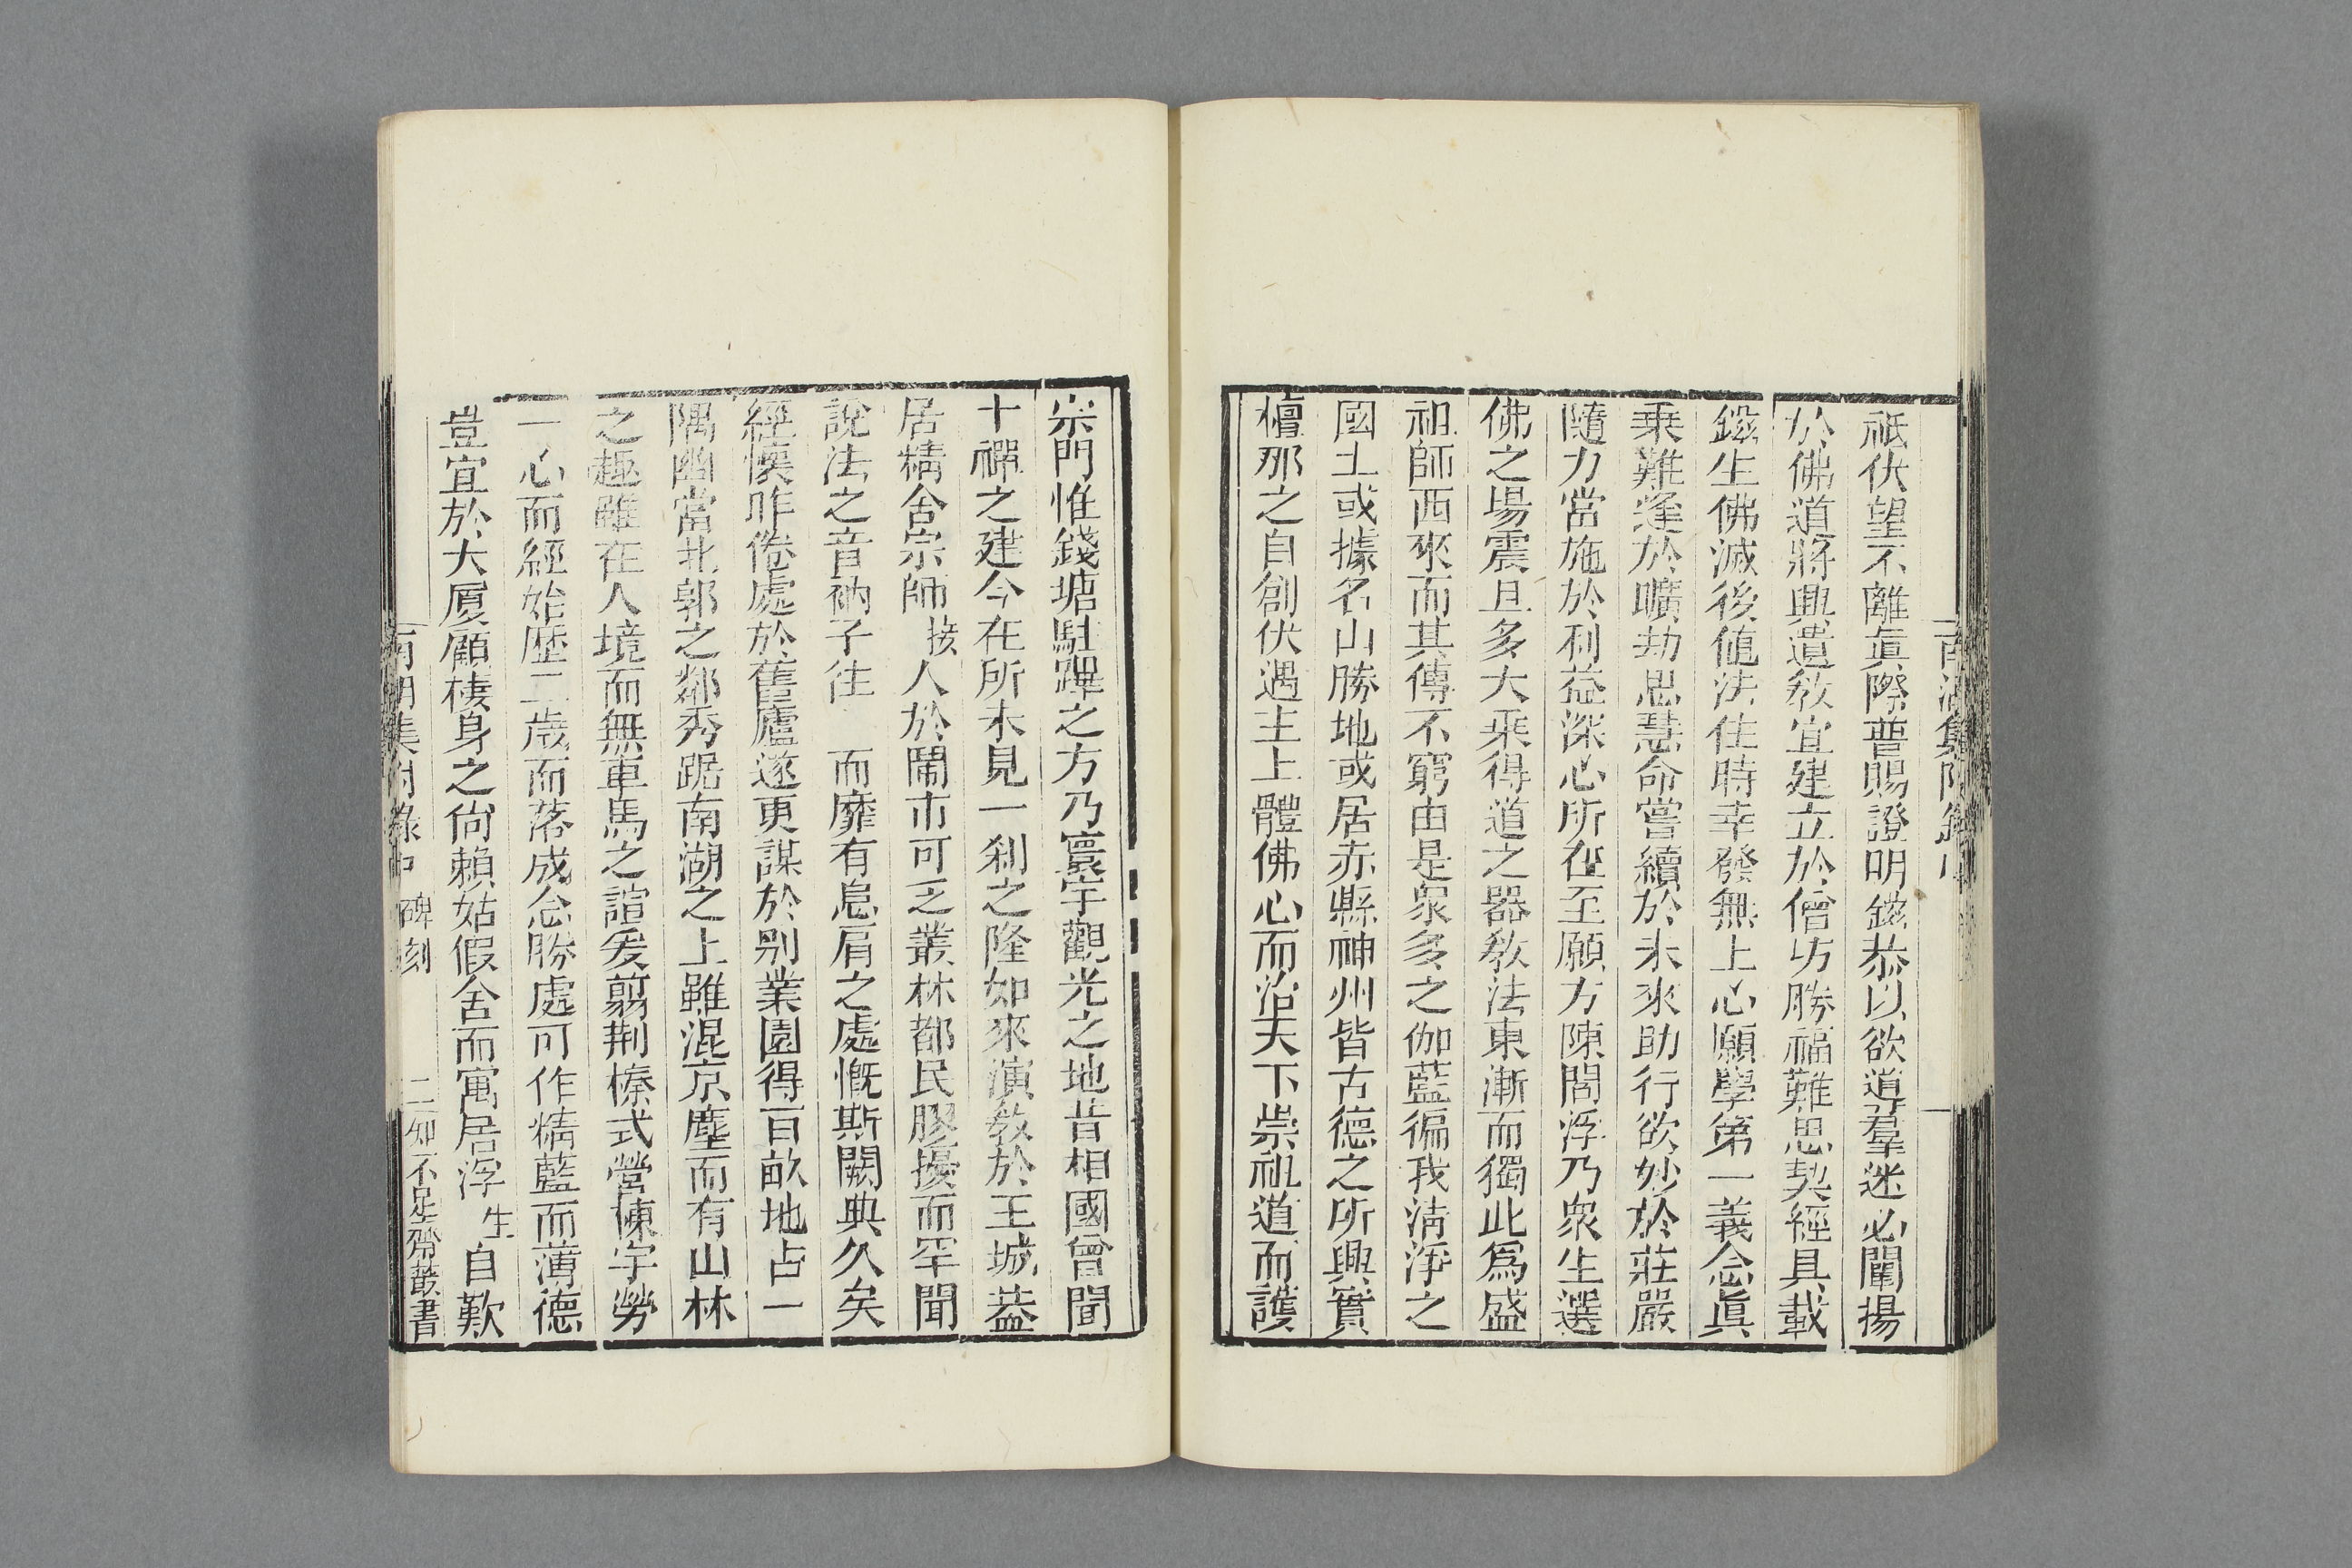 祇伏望不離眞際普賜證明鎡恭以欲導羣迷必闡揚
於佛道將興遺敎宜建立於僧坊勝福難思契經具載
鎡生佛滅後値法住時幸發無上心願學第一義念眞
乗難逢於曠劫思慧命嘗續於未來助行欲妙於莊嚴
隨力當施於利益深心所在至願方陳閻浮乃衆生選
佛之場震旦多大乘得道之器敎法東漸而獨此爲盛
祖師西來而其傳不窮由是衆多之伽藍徧我淸淨之
國土或據名山勝地或居赤縣神州皆古德之所興實
檀那之自創伏遇主上體佛心而治天下崇祖道而護
宗門惟錢塘駐蹕之方乃寰宇觀光之地昔相國曾聞
十禪之建今在所未見一刹之隆如來演敎於王城葢
居精舍宗師接人於鬧市可乏叢林都民膠擾而罕聞
說法之音衲子往 而靡有息肩之處慨斯闕典久矣
經懷昨倦處於舊廬遂更謀於别業園得百畝地占一
隅幽當北郭之鄰秀踞南湖之上雖混京塵而有山林
之趣雖在人境而無車馬之諠爰翦荆榛式營棟宇勞
一心而經始歴二歳而落成念勝處可作精藍而薄德
豈宜於大厦顧棲身之尙賴姑假舍而寓居浮生自歎
南湖集附錄中 碑刻 二 知不足齋叢書